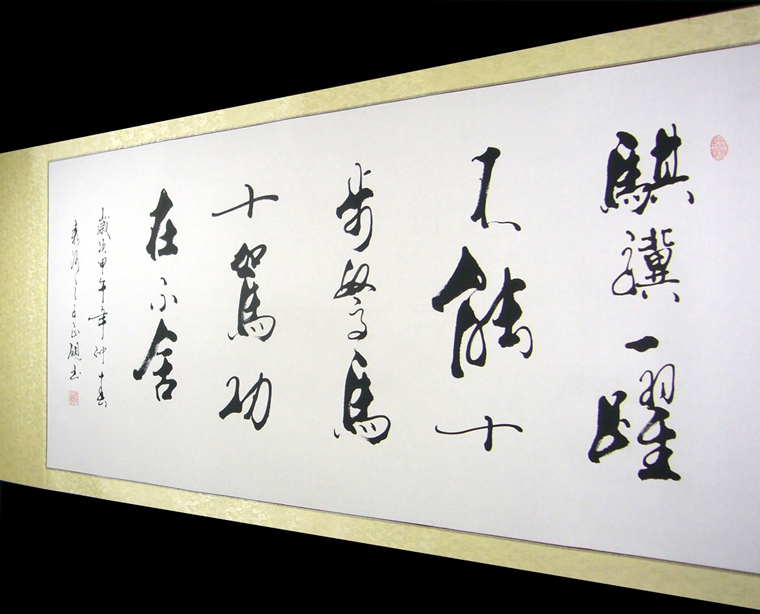 騏驥一躍
不能十
步駑馬
十駕功
在不舍
歲次甲午年仲春
正碩书